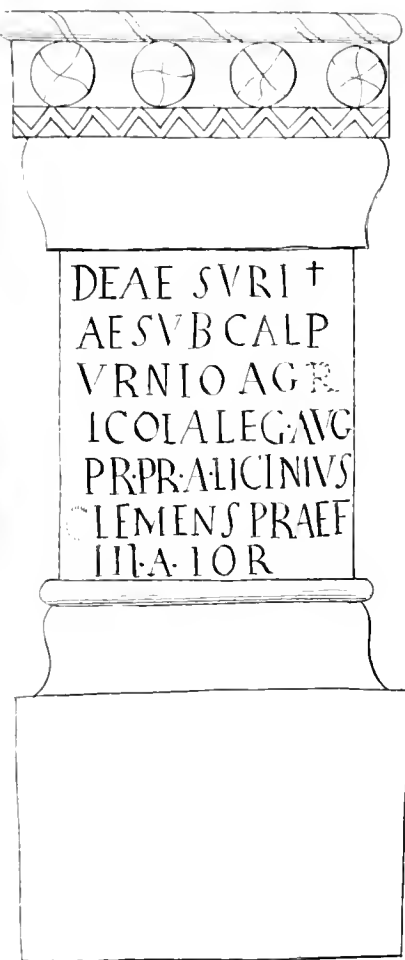 DEAE SVRI†
AE SVB CALP
VRNIO AGR
ICOLA LEG·AVG
PR·PR·A·LICINIVS
CLEMENS PRAEF
III·A·IOR